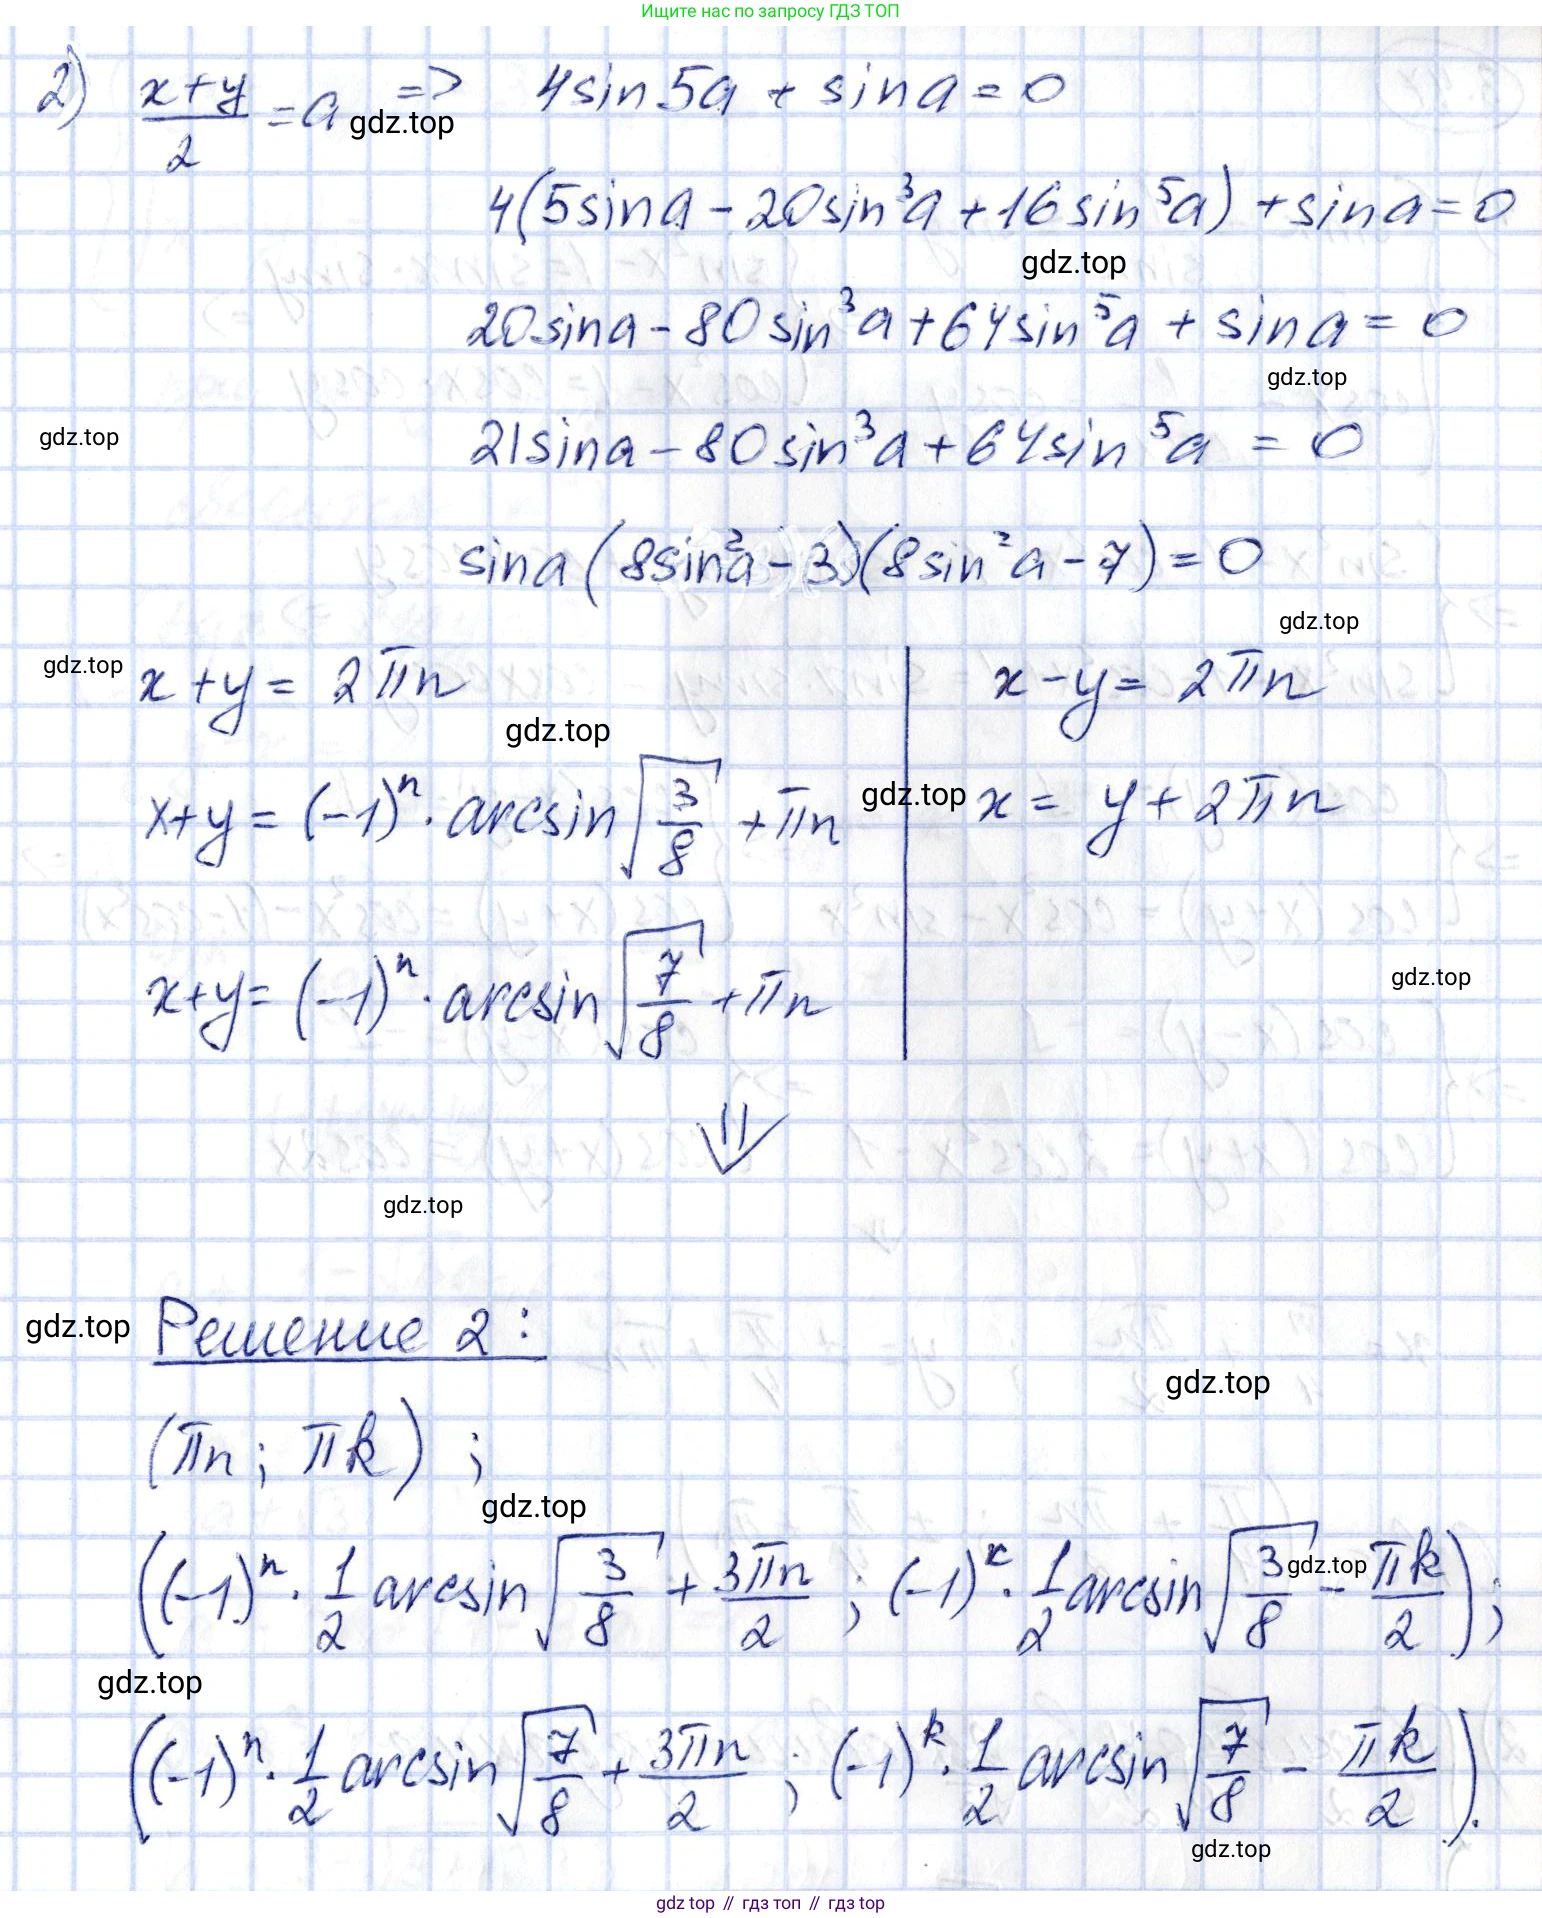 Ищите нас по запросу ГДЗ ТОП
2) (x+y)/2 = a => 4sin5a + sina = 0
gdz.top
4(5sina - 20sin³a + 16sin⁵a) + sina = 0
gdz.top
20sina - 80sin³a + 64sin⁵a + sina = 0
gdz.top
gdz.top
21sina - 80sin³a + 64sin⁵a = 0
sina(8sin²a - 3)(8sin²a - 7) = 0
gdz.top
gdz.top
x + y = 2πn
x - y = 2πn
gdz.top
x + y = (-1)ⁿ · arcsin√(3/8) + πn
gdz.top
x = y + 2πn
x + y = (-1)ⁿ · arcsin√(7/8) + πn
gdz.top
⇓
gdz.top
gdz.top
Решение 2:
gdz.top
(πn; πk);
gdz.top
((-1)ⁿ · 1/2 arcsin√(3/8) + 3πn/2; (-1)ᵏ · 1/2 arcsin√(3/8) - πk/2);
gdz.top
gdz.top
((-1)ⁿ · 1/2 arcsin√(7/8) + 3πn/2; (-1)ᵏ · 1/2 arcsin√(7/8) - πk/2).
gdz.top
gdz top // гдз топ // гдз top